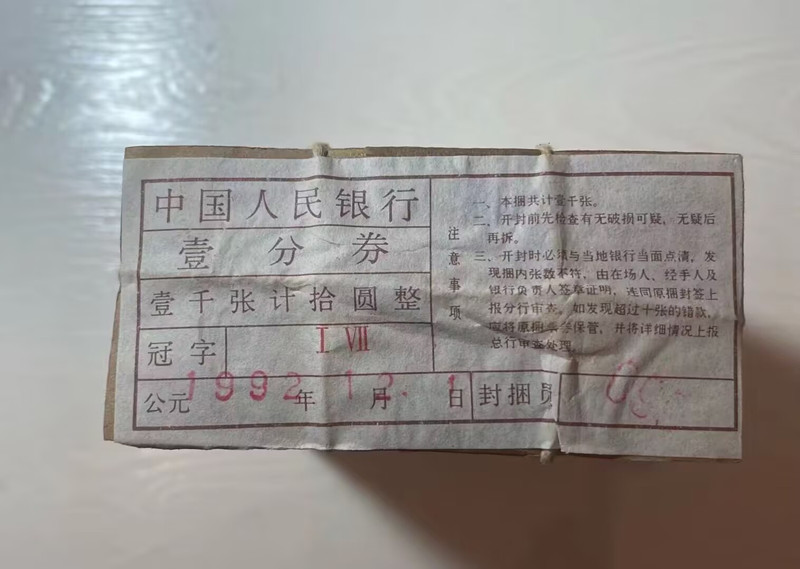 中国人民银行
壹分券
壹千张计拾圆整
冠字 I VII
公元1992年12月1日 封捆员
注意事项
一、本捆共计壹千张。
二、开封前先检查有无破损可疑，无疑后
再拆。
三、开封时必须与当地银行当面点清，发
现捆内张数不符，由在场人、经手人及
银行负责人签章证明，连同原捆封签上
报分行审查，如发现超过十张的错款，
应将原捆保管，并将详细情况上报
总行审查处理。